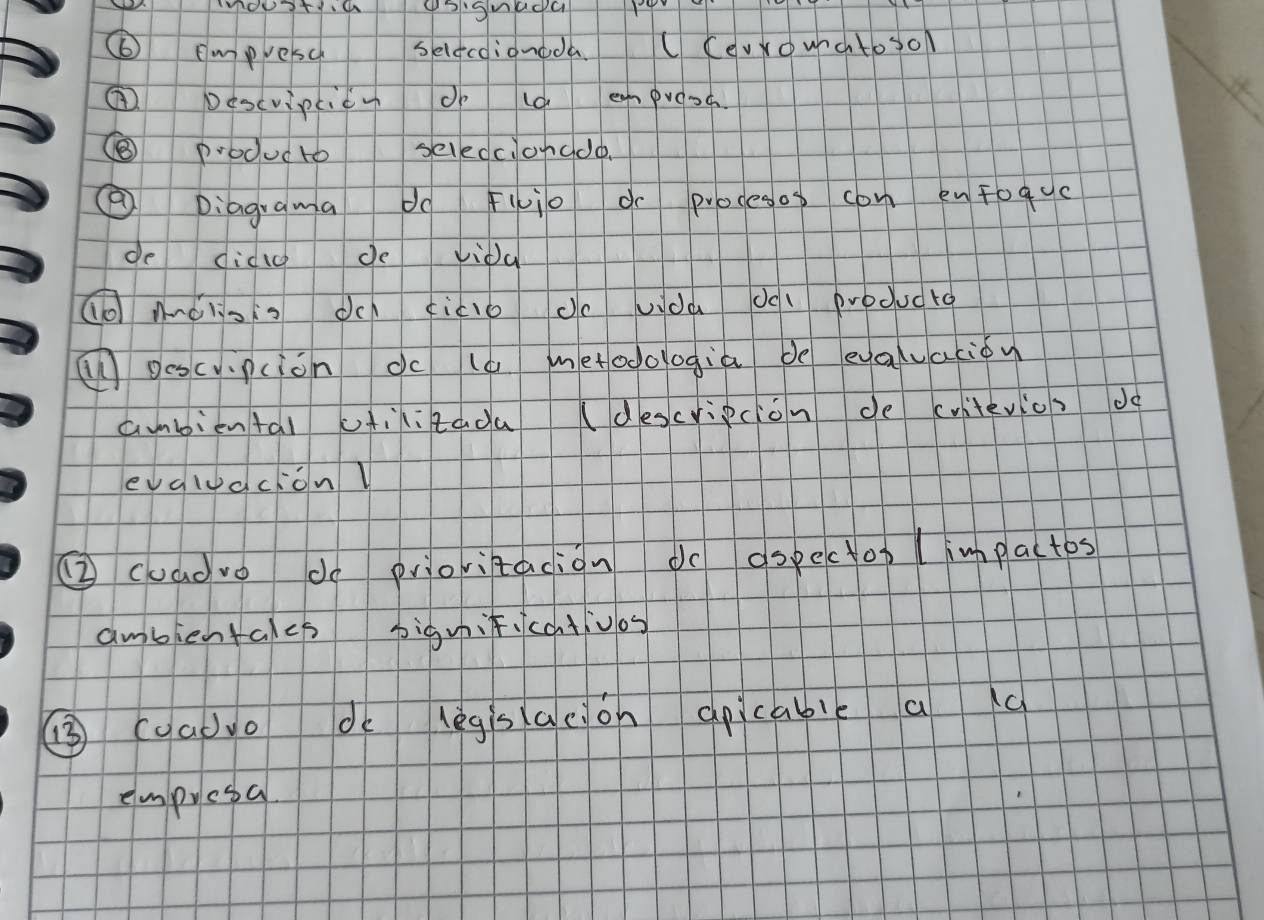 industria asignada
⑥ empresa seleccionada. ( Cerromatosol
⑦ Descripción de la empresa.
⑧ producto seleccionado.
⑨ Diagrama de Flujo de procesos con enfoque
de ciclo de vida
⑩ Análisis del ciclo de vida del producto
⑪ Descripción de la metodologia de evaluación
ambiental utilizada ( descripción de criterios de
evaluación )
⑫ cuadro de priorización de aspectos ( impactos
ambientales significativos
⑬ cuadro de legislación apicable a la
empresa.